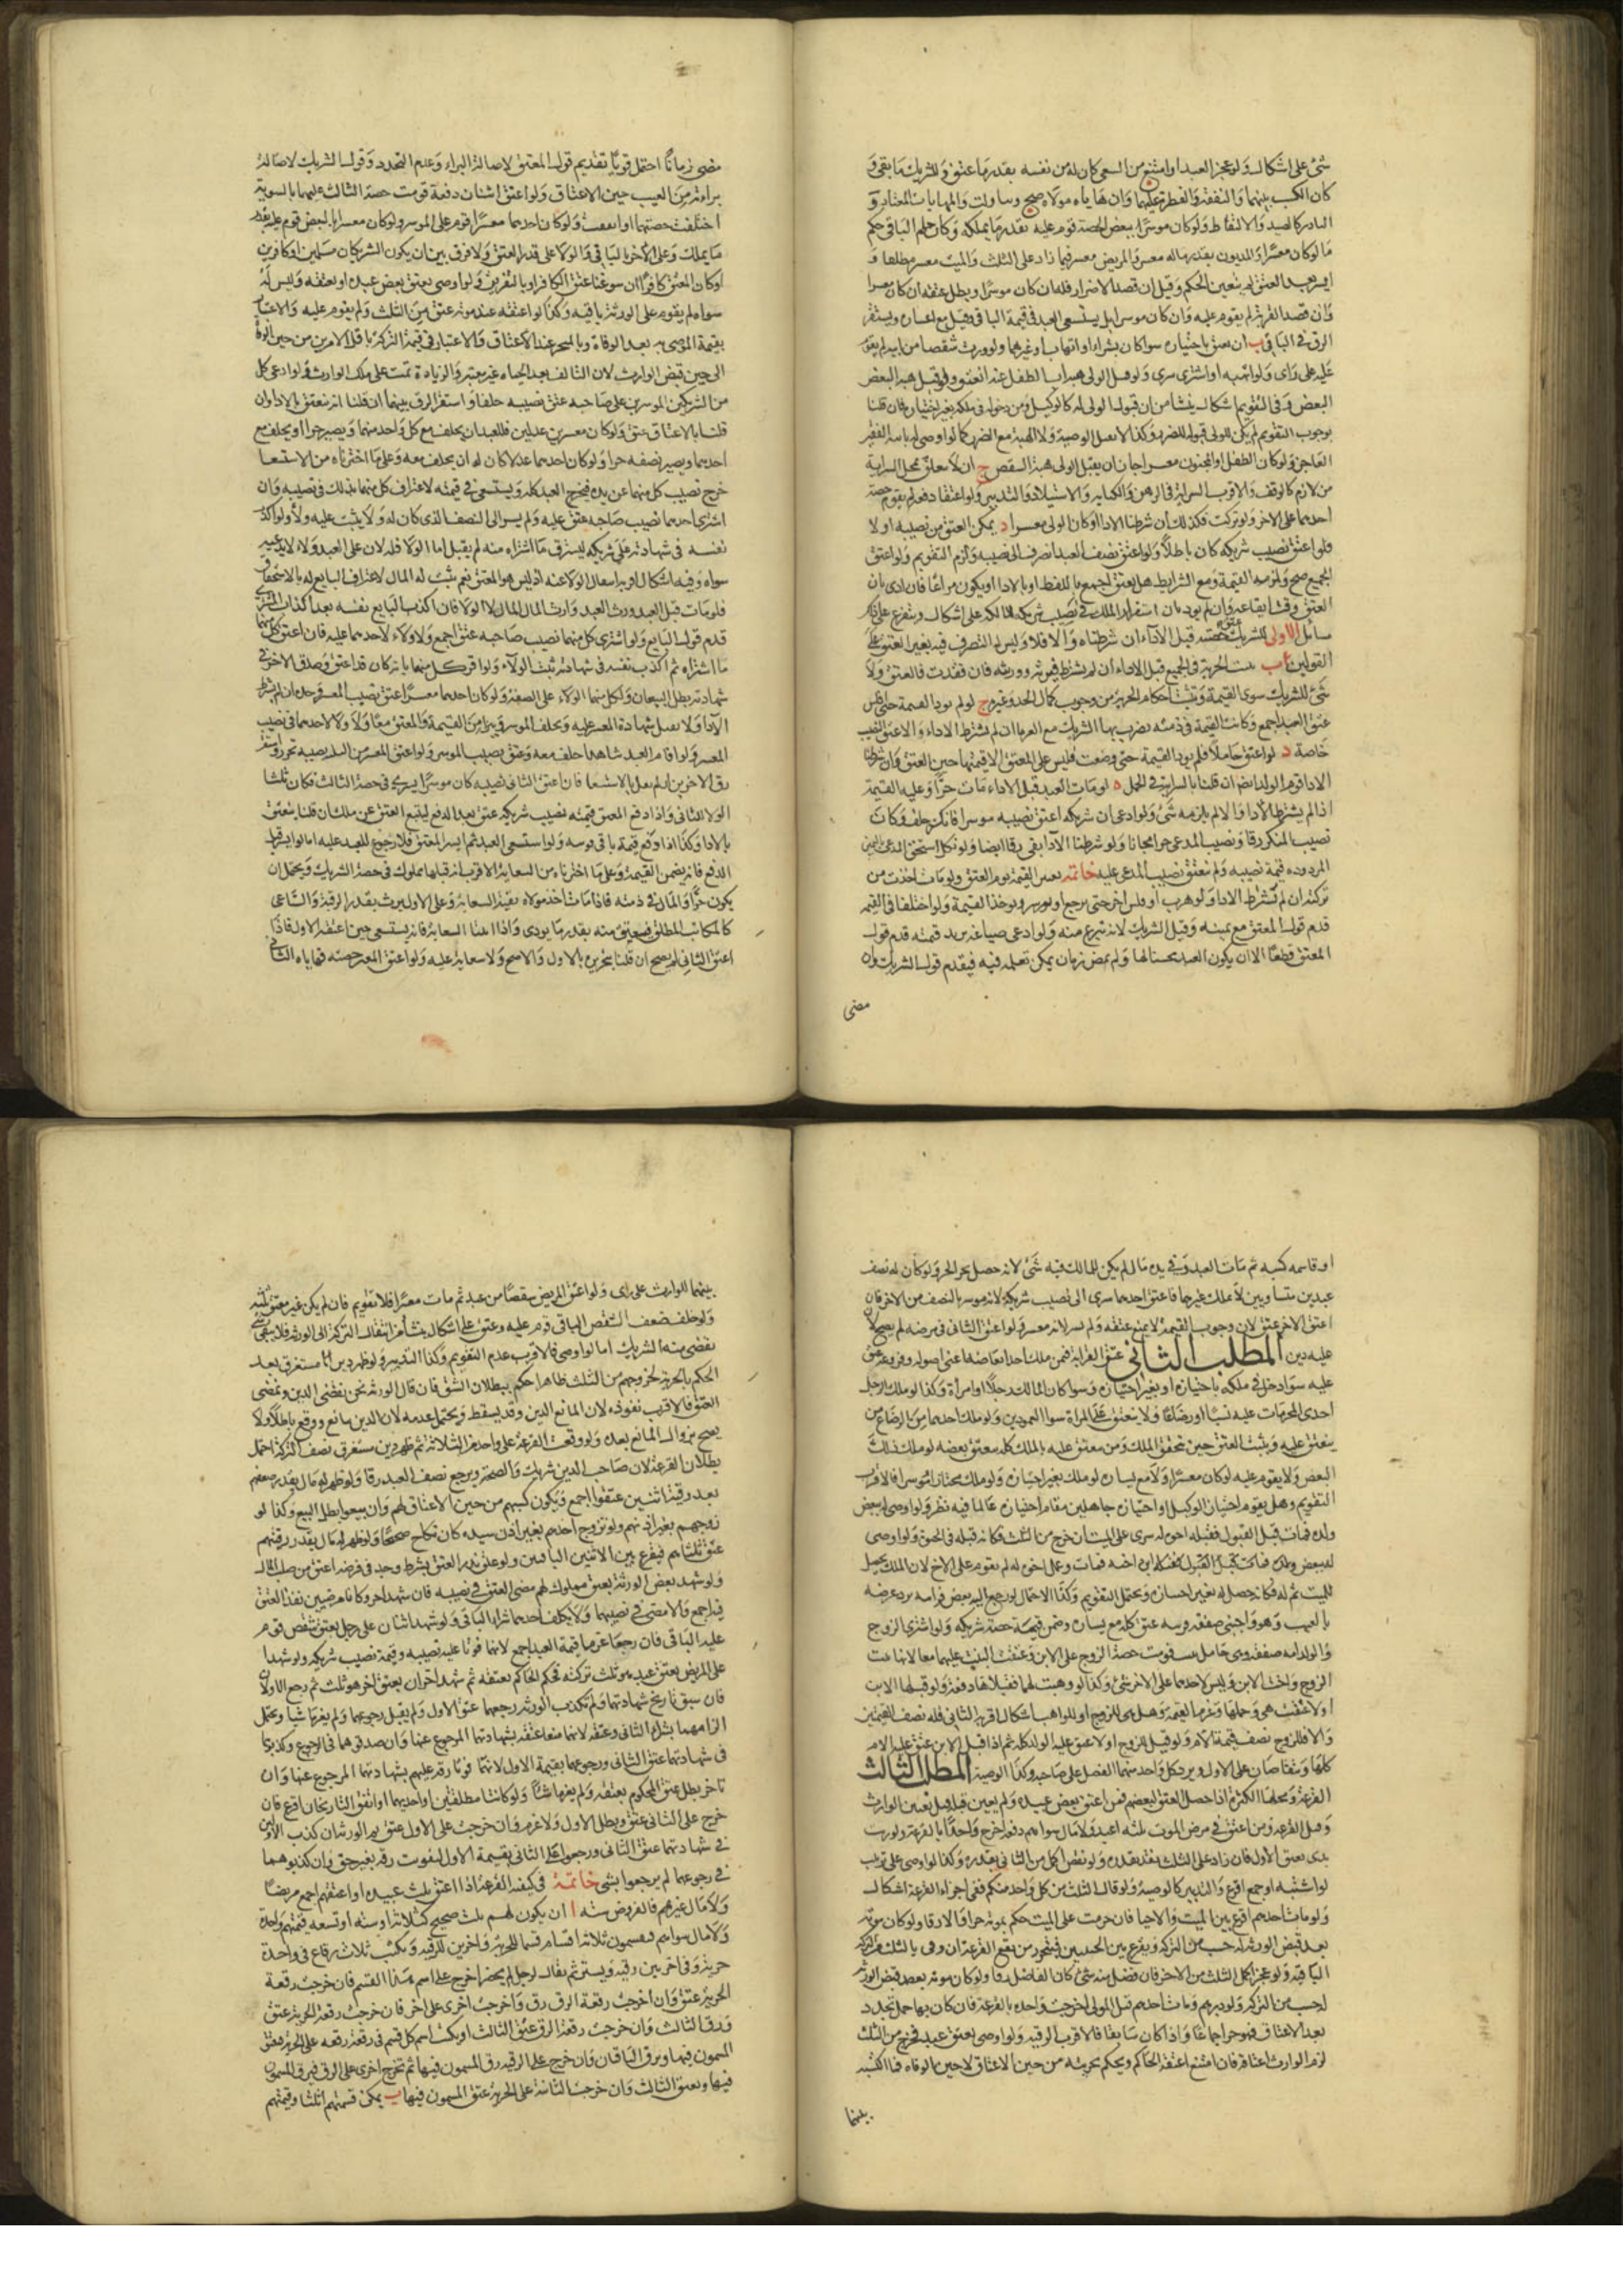 شئ على اشكال ولو عجز العبد او امتنع من السعى كان له من نفسه بقدر ما عتق وللشريك ما بقى و
كان الكسب بينهما والنفقة والفطرة عليهما وان هاياه مولاه صح وساوت والمهاياة المعتاد و
النادر كالصيد والالتقاط ولو كان موسرا ببعض الحصة قوم عليه بقدر ما يملكه وكان حكم الباقى حكم
ما لو كان معسرا والمديون بقدر ماله معسر والمريض معسر فيما زاد على الثلث والميت معسر مطلقا و
العتق لم يتعين الحكم وقيل ان قصد الاضرار فكه ان كان موسرا وبطل عتقه ان كان معسرا
وان قصد القربة لم يقوم عليه وان كان موسرا بل يستسعى العبد فى قيمة الباقى وقيل مع اعساره ويستقر
الرق فى الباقى ب ان يعتق باختياره سوا كان بشراء او اتهاب او غيرهما ولو ورث شقصا من ابيه لم يقوم
عليه على راى ولو اتهبه او اشترى سرى ولو قبل الولى هبة اب الطفل عنه انعتق ولو قبل هبة البعض
البعض وفى التقويم اشكال ينشا من ان قبول الولى له كالوكيل ومن دخوله فى ملكه بغير اختياره فان قلنا
بوجوب التقويم لم يكن للولى قبوله للضرر وكذا لا يقبل الوصية ولا الهبة مع الضرر كما لو اوصى له بابيه الفقير
العاجز ولو كان الطفل او المجنون معسرا جاز ان يقبل الولى هبة الشقص ج ان لا يتعلق بمحل السراية
حق لازم كالوقف والاقرب السراية فى الرهن والكتابة والاستيلاد والتدبير ولو اعتقا دفعة لم يقوم حصة
احدهما على الاخر ولو ترتب فكذلك ان شرطنا الادا او كان الاول معسرا د تمكن العتق من نصيبه اولا
فلو اعتق نصيب شريكه كان باطلا ولو اعتق نصف العبد انصرف الى نصيبه ولزم التقويم ولو اعتق
الجميع صح ولزمه القيمة ومع الشرايط هل يعتق اجمع باللفظ او بالادا او يكون مراعا فان ادى بان
العتق وقت ايقاعه وان لم يود بان استقرار الملك فى نصيب شريكه لمالكه على اشكال ويتفرع على ذلك
مسائل الاولى للشريك عتق حصته قبل الاداء ان شرطناه والا فلا وليس له التصرف فيه بغير العتق على
القولين ب يثبت الحرية فى الجميع قبل الاداء ان لم يشترط فيورثه وورثته فان فقدت فالعتق ولا
شئ للشريك سوى القيمة وتثبت احكام الحرية من وجوب كمال الحد وغيره ج لو لم يود القيمة حتى افلس
عتق العبد اجمع وكانت القيمة فى ذمته تضرب بها الشريك مع الغرما ان لم يشترط الاداء والا عتق نصيب
خاصة د لو اعتق حاملا فلم يود القيمة حتى وضعت فليس على المعتق الا قيمتها حين العتق وان شرطنا
الادا قوم الولد ايضا ان قلنا بالسراية فى الحمل ه لو مات العبد قبل الاداء مات حرا وعليه القيمة
اذا لم يشترط الادا والا لم يلزمه شئ ولو ادعى ان شريكه اعتق نصيبه موسرا فانكر حلف وكان
نصيب المنكر رقا ونصيب المدعى حرا مجانا ولو شرطنا الادا بقى رقا ايضا ولو نكل استحق المدعى باليمين
المردودة قيمة نصيبه ولم يعتق نصيب المدعى عليه خاتمة تعتبر القيمة يوم العتق ولو مات اخذت من
تركته ان لم نشترط الادا ولو هرب او فلس اخر حتى يرجع او يوسر ويوخذ القيمة ولو اختلفا فى القيمة
قدم قول المعتق مع يمينه وقيل الشريك لانه ينتزع منه ولو ادعى صياغة يزيد قيمته قدم قول
المعتق قطعا الا ان يكون العبد محسنا لها ولم يمض زمان يمكن تعلمه فيه فيقدم قول الشريك وان
مضى
مضى زمانا احتمل قويا تقديم قول المعتق لاصالة البراءة وعدم التجدد وقول الشريك لاصالة
براءته من العيب حين الاعتاق ولو اعتق اثنان دفعة قومت حصة الثالث عليهما بالسوية
اختلفت حصتهما او اتفقت ولو كان احدهما معسرا قوم على الموسر ولو كان معسرا بالبعض قوم عليه بقدر
ما يملك وعلى الاخر بالباقى والولاء على قدر العتق ولا فرق بين ان يكون الشريكان مسلمين او كافرين
او كان المعتق كافرا ان سوغنا عتق الكافر او بالتفريق ولو اوصى بعتق بعض عبده او بعتقه وليس له
سواه لم يقوم على الورثة باقيه وكذا لو اعتقه عند موته عتق من الثلث ولم يقوم عليه والاعتبار
بقيمة الموصى به بعد الوفاة وبالمنجز عند الاعتاق والاعتبار فى قيمة التركة باقل الامرين من حين الوفاة
الى حين قبض الوارث لان التالف بعد الحياة غير معتبر والزيادة نمت على ملك الوارث ولو ادعى كل
من الشريكين الموسرين على صاحبه عتق نصيبه حلفا واستقر الرق بينهما ان قلنا انه ينعتق بالاداوان
قلنا بالاعتاق عتق ولو كان معسرين عدلين فللعبد ان يحلف مع كل واحد منهما ويصير حرا او يحلف مع
احدهما ويصير نصفه حرا ولو كان احدهما عدلا كان له ان يحلف معه وعلى ما اخترناه من الاستسعا
خرج نصيب كل منهما عن يده فيخرج العبد كله ويستسعى فى قيمته لاعتراف كل منهما بذلك فى نصيبه وان
اشترى احدهما نصيب صاحبه عتق عليه ولم يسر الى النصف الذى كان له ولا يثبت عليه ولا ولو اكذب
نفسه فى شهادته على شريكه ليسترق ما اشتراه منه لم يقبل اما الولا فله لان على العبد ولاء لا يدعيه
سواه وفيه اشكال اقربه انتفاء الولا عنه اذ ليس هو المعتق نعم يثبت له المال لاعتراف البايع له بالاستحقاق
فلو مات قبل العبد ورث العبد وارث المال المال لا الولا فان اكذب البايع نفسه بعد اكذاب المشترى
قدم قول البايع ولو اشترى كل منهما نصيب صاحبه عتق اجمع ولا ولاء لاحدهما عليه فان اعتق كل منهما
ما اشتراه ثم اكذب نفسه فى شهادته ثبت الولاء ولو اقر كل منهما بانه كان قد اعتق وصدق الاخر فى
شهادته بطل البيعان ولكل منهما الولاء على النصف ولو كان احدهما معسرا عتق نصيب المعسر وحده ان لم يشترط
الادا ولا تقبل شهادة المعسر عليه ويحلف الموسر ويبرا من القيمة والعتق معا ولا ولا لاحدهما فى نصيب
المعسر ولو اقام العبد شاهدا حلف معه وعتق نصيب الموسر ولو اعتق المعسر من الثلثة نصيبه تحرر واستقر
رق الاخرين ان لم نقل بالاستسعا فان اعتق الثانى نصيبه وكان موسرا يسرى فى حصة الثالث فكان ثلثا
الولا للثانى واذا دفع المعتق قيمة نصيب شريكه عتق بعد الدفع ليقع العتق عن ملك ان قلنا ينعتق
بالادا وكذا اذا دفع قيمة باقى قوسه ولو استسعى العبد ثم ايسر المعتق فلا رجوع للعبد عليه اما لو ايسر قبل
الدفع فانه يضمن القيمة وعلى ما اخترناه من السعاية الاقرب انه قبلها مملوك فى حصة الشريك ويحتمل ان
يكون حرا والمال فى ذمته فاذا مات اخذ مولاه بقية السعاية وعلى الاول يرث بقدر الرقية والساعى
كالمكاتب المطلق فيعتق منه بقدر ما يودى واذا اثبتنا السعاية فانه يستسعى حين اعتقه الاول فاذا
اعتق الثانى لم يصح ان قلنا بتحريره بالاول والا صح ولا سعاية عليه ولو اعتق المعسر حصته فهاياه الثانى
او قاسمه كسبه ثم مات العبد وفى يده مال لم يكن للمالك فيه شئ لانه حصل بجزء الحر ولو كان له نصف
عبدين متساويين لا يملك غيرهما فاعتق احدهما سرى الى نصيب شريكه لانه موسر بالنصف من الاخر فان
اعتق الاخر عتق لان وجوب القيمة لا يمنع عتقه ولم يسر لانه معسر ولو اعتق الثانى فى مرضه لم يصح لان
عليه دين المطلب الثانى عتق القرابة فمن ملك احد ابعاضه اعنى اصوله وفروعه عتق
عليه سوا دخل فى ملكه باختياره او بغير اختياره وسوا كان المالك رجلا او امراة وكذا لو ملك الرجل
احدى المحرمات عليه نسبا او رضاعا ولا ينعتق على المراة سوا العمودين ولو ملك احدهما من الرضاع من
ينعتق عليه ويثبت العتق حين تحقق الملك ومن معتق عليه بالملك كله معتق بعضه لو ملك ذلك
البعض ولا يقوم عليه لو كان معسرا ولا مع يساره لو ملك بغير اختياره ولو ملك مختارا موسرا فالاقرب
التقويم وهل يقوم اختيار الوكيل او اختياره جاهلين مقام اختياره عالما فيه نظر ولو اوصى له ببعض
ولده فمات قبل القبول فقبله اخوه له سرى على الميت ان خرج من الثلث فكانه قبله فى الحيوة ولو اوصى
له ببعض ولده فمات قبل القبول فقبله ابن اخيه فمات وعلى اخوه له لم يقوم على الاخ لان الملك يحصل
للميت ثم له فكانه حصل له بغير اختياره ويحتمل التقويم وكذا الاحتمال لو رجع اليه بعض قرابته برد عوضه
بالعيب وهو واجنبى صفقة قريبه عتق كله مع يساره وضمن قيمة حصة شريكه ولو اشترى الزوج
والولد امه صفقة وهى حامل ببنت قومت حصة الزوج على الابن وعتقت البنت عليهما معا لانها بنت
الزوج واخت الابن وليس لاحدهما على الاخر شئ وكذا لو وهبت لهما فقبلاها دفعة ولو قبلها الابن
اولا عتقت هى وحملها وغرم القيمة وهل هى للزوج او للواهب اشكال اقربه الثانى فله نصف القيمتين
والا فللزوج نصف قيمة الام ولو قبل الزوج اولا عتق عليه الولد كله ثم اذا قبل الابن عتق عليه الام
كلها ويتقاصان على الاول ويرد كل واحد منهما الفضل على صاحبه وكذا الوصية المطلب الثالث
القرعة ومحلها الكثرة اذا حصل العتق لبعضهم فمن اعتق بعض عبيده ولم يعين قيل يعين الوارث
وقيل القرعة ومن اعتق فى مرض الموت ثلثة اعبد ولا مال سواهم دفعة اخرج واحد بالقرعة ولو رتب
بدى بعتق الاول فان زاد على الثلث عتق بقدره ولو نقص اكمل من الثانى بقدره وكذا لو اوصى على ترتيب
لو اشتبه او جمع اقرع والتدبير كالوصية ولو قال الثلث من كل واحد منكم ففى اجراء القرعة اشكال
ولو مات احدهم اقرع بين الميت والاحيا فان خرجت على الميت حكم بموته حرا والا رقا ولو كان موته
بعد قبض الورثة له حسب من التركة ويقرع بين الحيين فيحرر من تقع القرعة ان وفى بالثلث من التركة
الباقية ولو عجز اكمل الثلث من الاخر فان فضل منه شئ كان الفاضل رقا ولو كان موته بعد قبض الورثة
له حسب من التركة ولو دبرهم ومات احدهم قبل المولى اخرجت واحده بالقرعة فان كان بها حمل تجدد
بعد الاعتاق فهو حر اجماعا واذا كان سابقا فالاقرب الرقية ولو اوصى بعتق عبد فخرج من الثلث
لزم الوارث اعتاقه فان امتنع اعتقه الحاكم ويحكم بحريته من حين الاعتاق لا حين الوفاة فما اكتسبه
بينهما
بينهما للوارث على راى ولو اعتق المريض شقصا من عبد ثم مات معسرا فلا تقويم فان لم يكن غيره عتق ثلثه
ولو خلف ضعف الشقص الباقى قوم عليه وعتق على اشكال ينشأ من انتقال التركة الى الورثة فلا يبقى شئ
يقضى منه الشريك اما لو اوصى فالاقرب عدم التقويم وكذا التدبير ولو ظهر دين مستغرق بعد
الحكم بالحرية لخروجهم من الثلث ظاهرا حكم ببطلان العتق فان قال الورثة نحن نقضى الدين ونمضى
العتق فالاقرب نفوذه لان المانع الدين وقد يسقط ويحتمل عدمه لان الدين مانع ووقع باطلا ولا
يصح بزوال المانع بعده ولو وقعت القرعة على واحد من الثلاثة ثم ظهر دين مستغرق نصف التركة احتمل
بطلان القرعة لان صاحب الدين شريك والصحة ويرجع نصف العبد رقا ولو ظهر له مال بقدر ضعفهم
بعد رقية اثنين عتقوا اجمع ويكون كسبهم من حين الاعتاق لهم وان بيعوا بطل البيع وكذا لو
زوجهم بغير اذنهم ولو تزوج احدهم بغير اذن سيده كان نكاحه صحيحا ولو ظهر له مال بقدر رقيتهم
عتق ثلثاهم فيقرع بين الاثنين الباقيين ولو علق نذر العتق بشرط وجد فى مرضه اعتق من صلب المال
ولو شهد بعض الورثة بعتق مملوك لهم مضى العتق فى نصيبه فان شهد اخر وكانا مرضيين نفذ العتق
فيه اجمع والا مضى فى نصيبهما ولا يكلف احدهما شرا الباقى ولو شهد اثنان على رجل بعتق شقص قوم
عليه الباقى فان رجعا غرما قيمة العبد اجمع لانهما فوتا عليه نصيبه وقيمة نصيب شريكه ولو شهدا
على المريض بعتق عبد هو ثلث تركته فحكم الحاكم بعتقه ثم شهد اخران بعتق اخر هو ثلث ثم رجع الاولان
فان سبق تاريخ شهادتهما ولم تكذب الورثة رجوعهما عتق الاول ولم يقبل رجوعهما ولم يغرما شيا ويحتمل
الزامهما بشراء الثانى وعتقه لانهما منعا عتقه بشهادتهما المرجوع عنها وان صدقوهما فى الرجوع وكذبوهما
فى شهادتهما عتق الثانى ورجعوا عليهما بقيمة الاول لانهما فوتا رقه عليهم بشهادتهما المرجوع عنها وان
تاخر بطل عتق المحكوم بعتقه ولم يغرما شئا ولو كانتا مطلقتين او احديهما او اتفق التاريخان اقرع فان
خرج على الثانى عتق وبطل الاول ولا غرم وان خرجت على الاول عتق ثم الورثة ان كذبت الاولين
فى شهادتهما عتق الثانى ورجعوا على الثانى بقيمة الاول لتفويت رقه بغير حق وان كذبوهما
فى رجوعهما لم يرجعوا بشئ خاتمة فى كيفية القرعة اذا اعتق ثلث عبيده او اعتقهم اجمع مريضا
ولا مال غيرهم فالفروض ستة ا ان يكون لهم ثلث صحيح كثلاثة او ستة او تسعة قيمتهم واحدة
ولا مال سواهم فيقسمون ثلاثة اقسام قسما للحرية واخرين للرقية ويكتب ثلاث رقاع فى واحدة
حرية وفى اخريين رقية ويستر ثم يقال لرجل لم يحضر اخرج على اسم هذا القسم فان خرجت رقعة
الحرية عتق وان خرجت رقعة الرق رق واخرجت اخرى على اخر فان خرجت رقعة الحرية عتق
ورق الثالث وان خرجت رقعة الرق عتق الثالث او يكتب اسم كل قسم فى رقعة رقعة على الحرية عتق
المسمون فيها ويرق الباقيان وان خرج على الرقية رق المسمون فيها ثم تخرج اخرى على الرق فيرق المسمون
فيها ويعتق الثالث وان خرجت الثانية على الحرية عتق المسمون فيها ب يمكن قسمتهم اثلاثا وقيمتهم